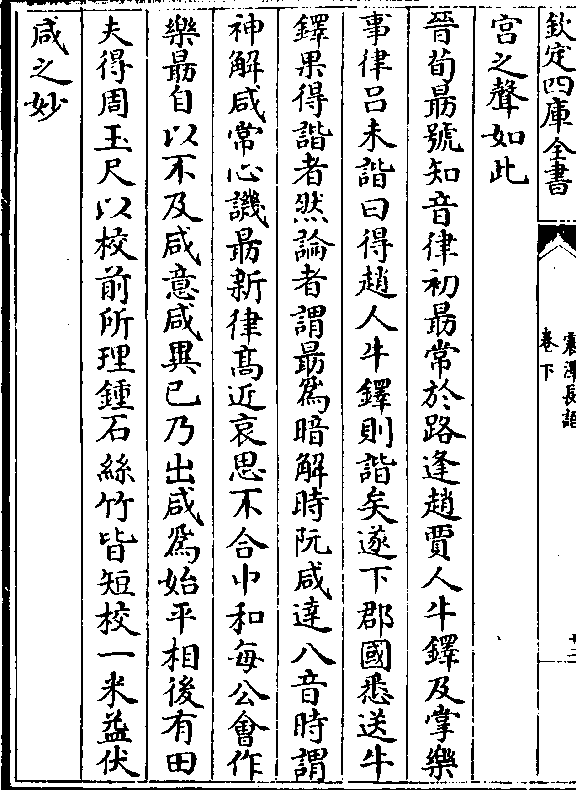 欽定四庫全書
震澤長語
卷下
十二
宮之聲如此
晉荀朂號知音律初朂常於路逢趙賈人牛鐸及掌樂
事律吕未諧曰得趙人牛鐸則諧矣遂下郡國悉送牛
鐸果得諧者然論者謂朂爲暗解時阮咸達八音時謂
神解咸常心譏朂新律髙近哀思不合中和每公會作
樂朂自以不及咸意咸異已乃出咸爲始平相後有田
夫得周玉尺以校前所理鍾石絲竹皆短校一米益伏
咸之妙